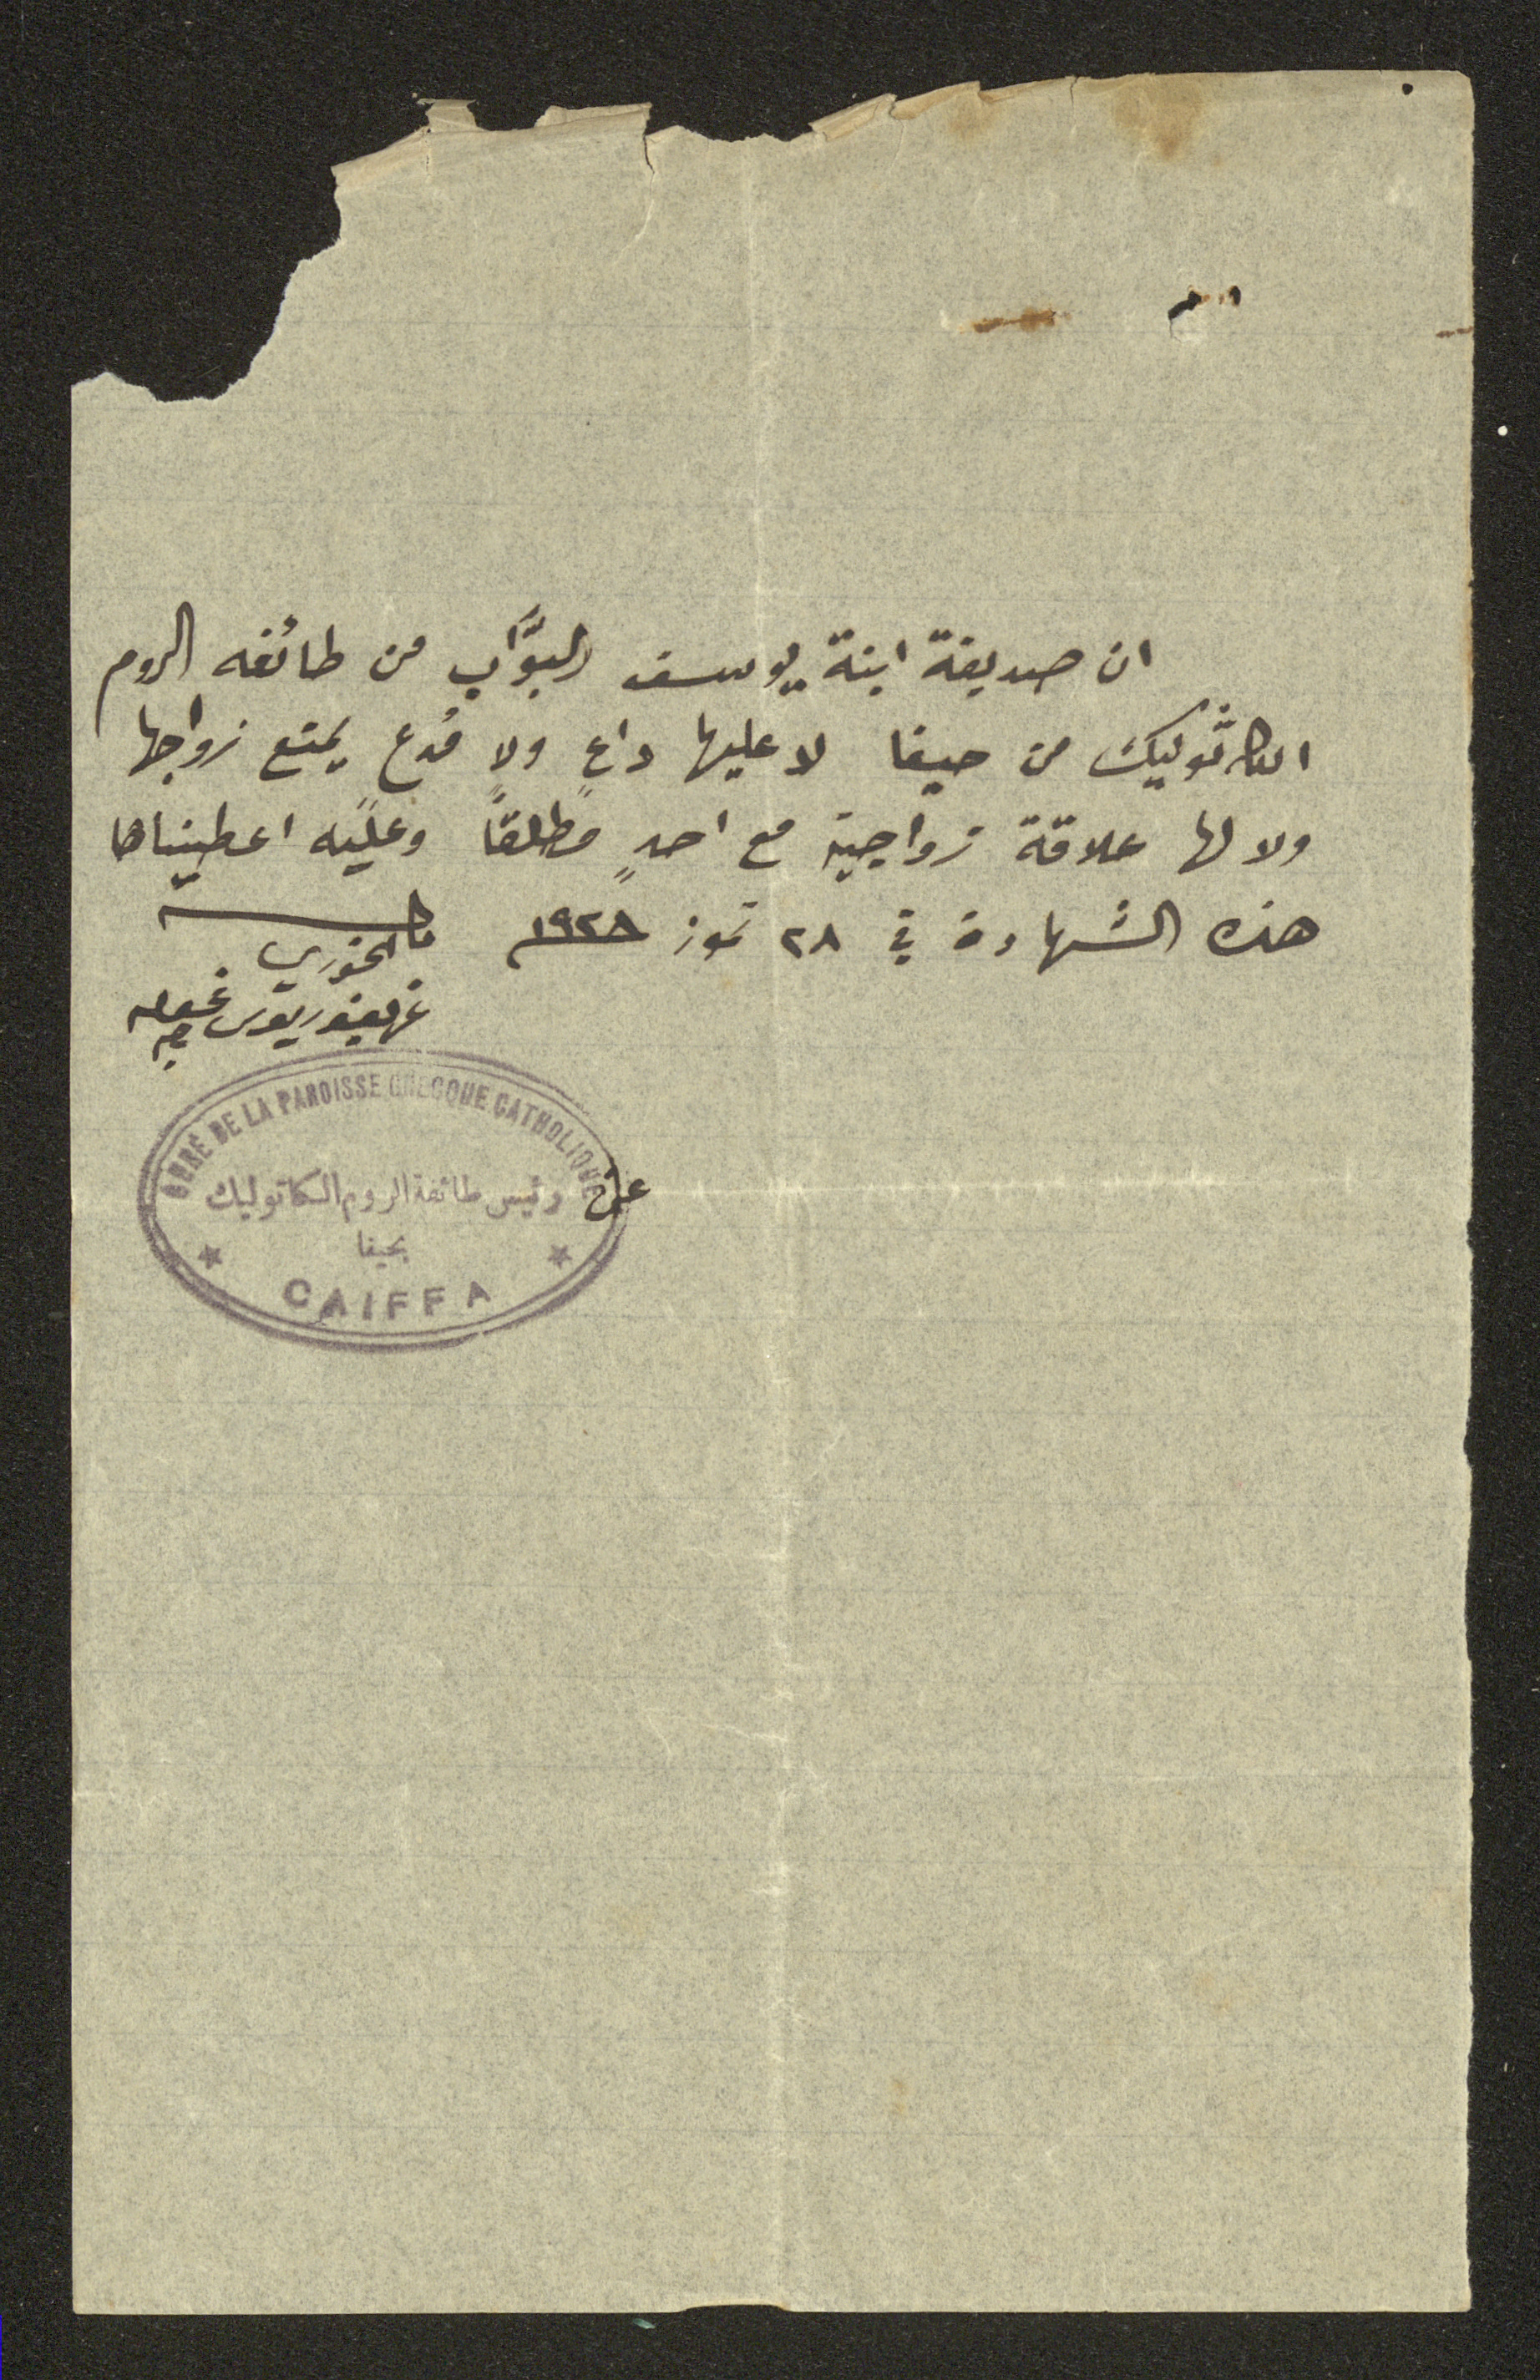 ان صديقة ابنة يوسف البوَّاب من طائفه الروم
الكاثوليك من حيفا لا عليها داعٍ ولا مُدعٍ يمنع زواجها
ولا لها علاقة زواجية مع احدٍ مطلقاً وعليه اعطيناها
هذه الشهادة في ٢٨ تموز ١٩٢٨
الخوري
غريغوريوس
CURÉ DE LA PAROISSE GRECQUE CATHOLIQUE
عن رئيس طائفة الروم الكاتوليك
بحيفا
CAIFFA